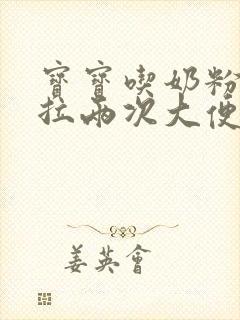 寶寶喫奶粉
拉兩次大便
姜英會